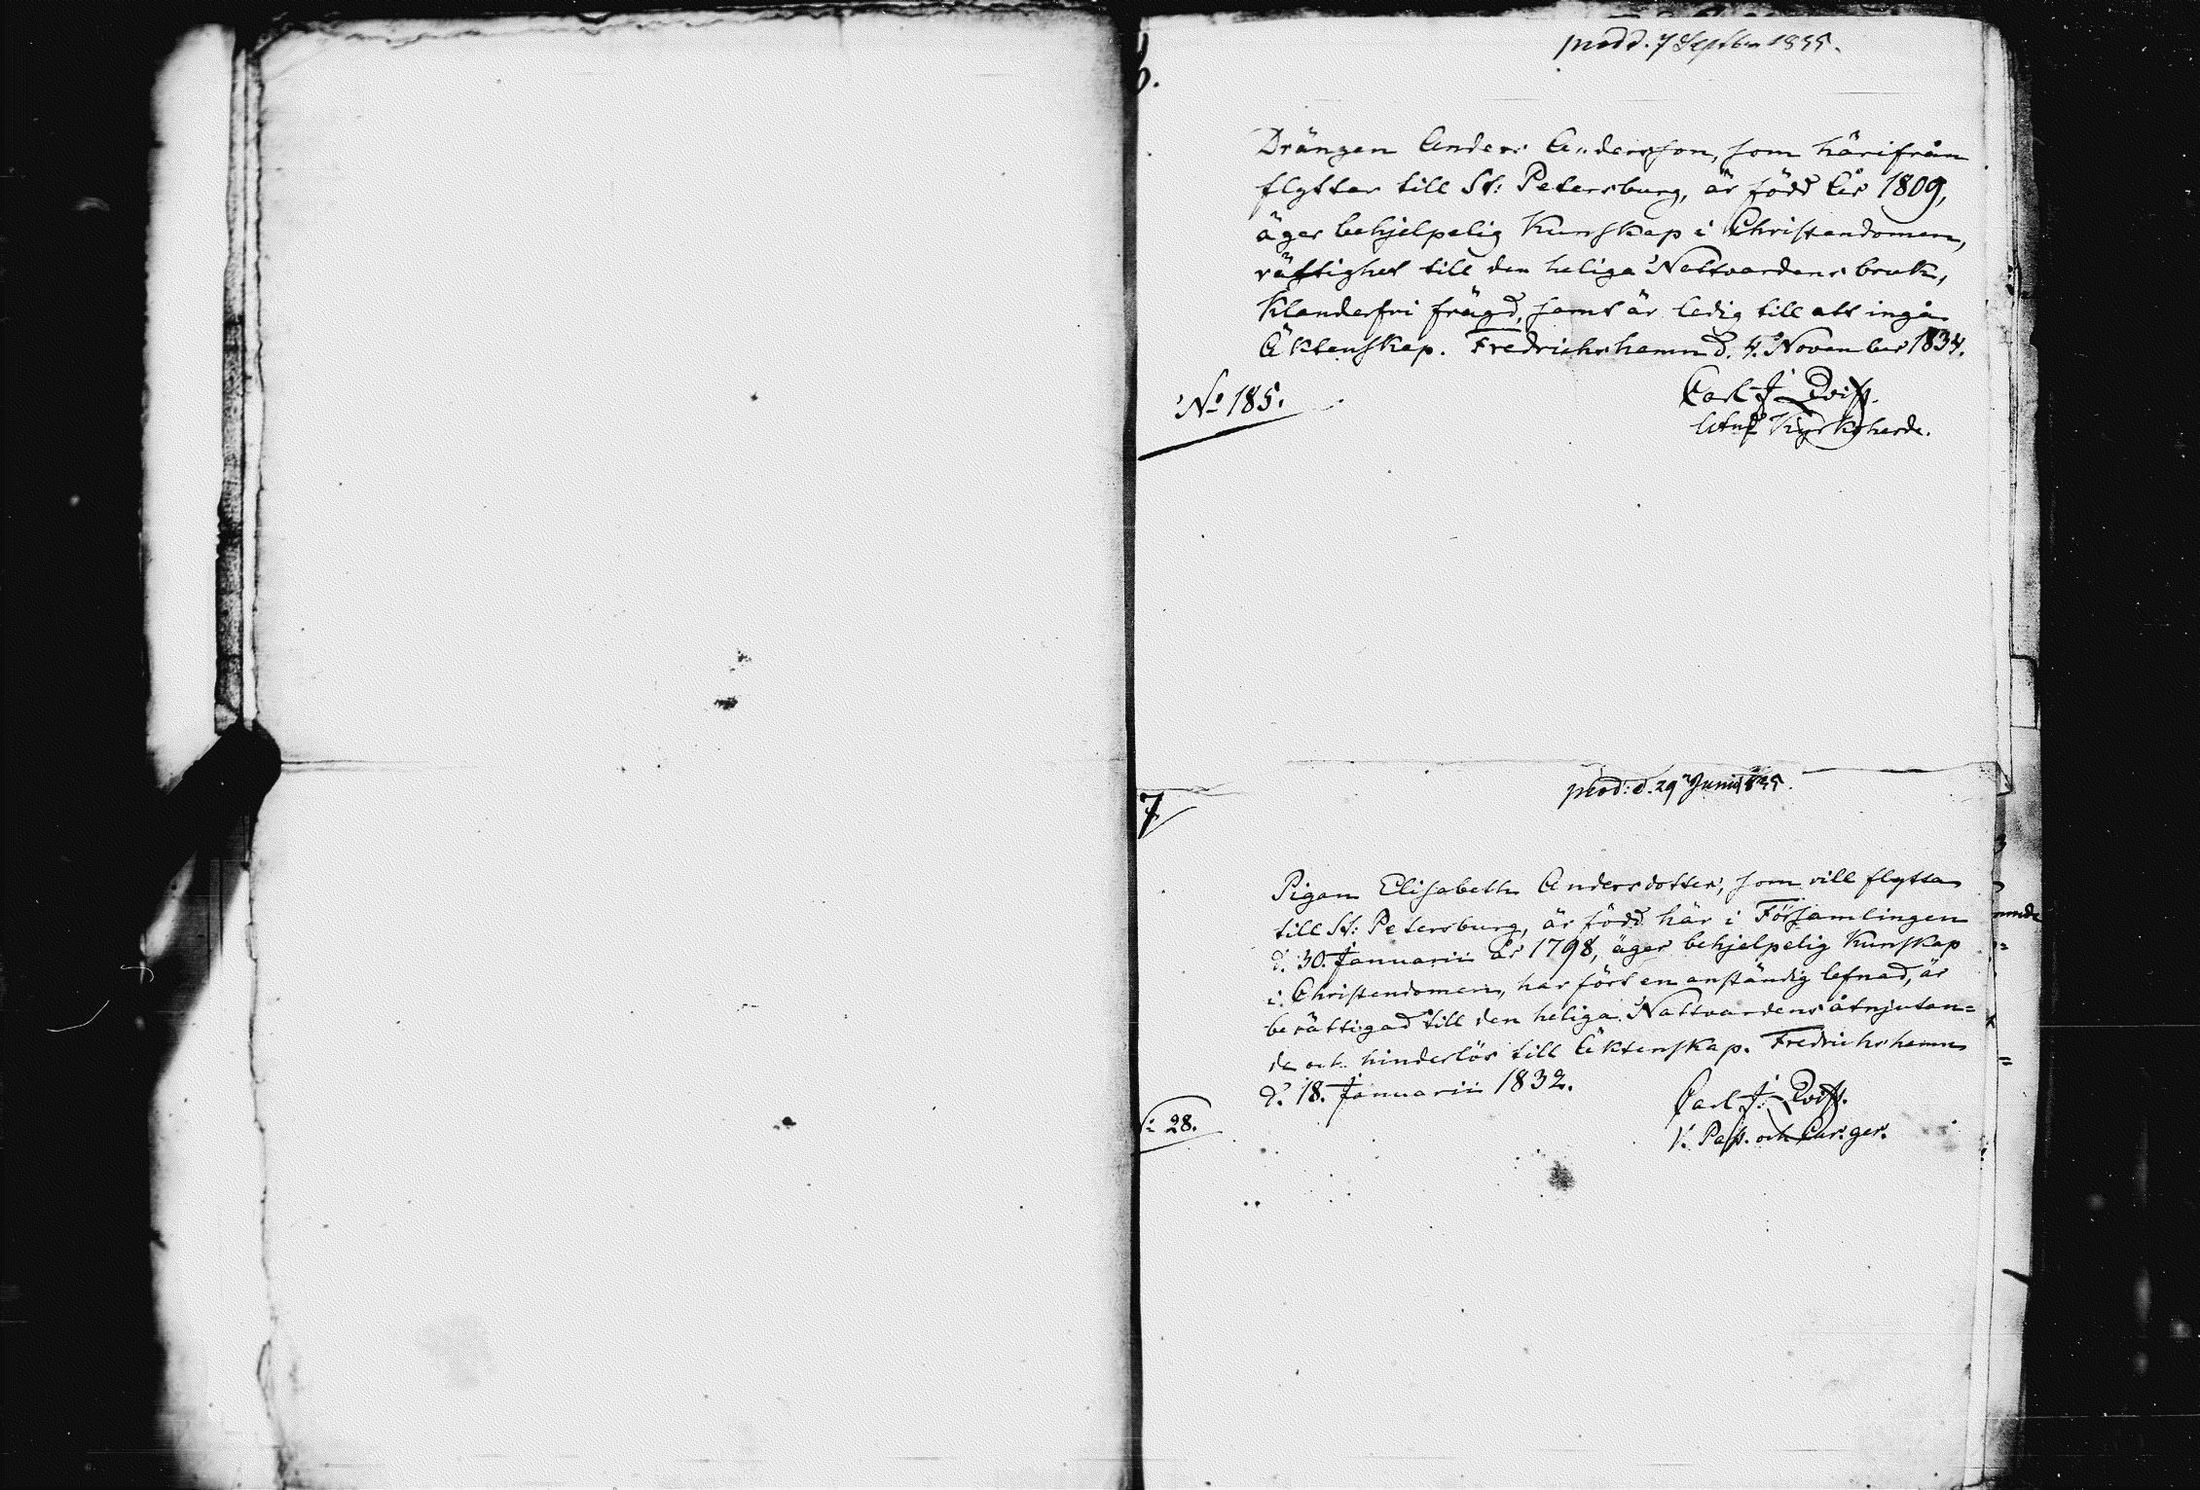 6.
prod d. 7 Septbr 1835.
Drängen Anders Andersson, som härifrån
flyttar till St: Petersburg, är född år 1809,
äger behjelpelig Kunskap i Christendomen,
rättighet till den heliga Nattvardens bruk,
Klanderfri frägd, samt är ledig till att ingå
Äktenskap. Fredrichshamn d. 4. November 1834.
No 185.
Carl J.
Kyrkoherde.
7
prod: d. 29 Junii 1835.
Pigan Elisabeth Andersdotter, som vill flytta
till St: Petersburg, är född här i Församlingen
d. 30. Januarii år 1798, äger behjelpelig Kunskap
i Christendomen, har fört en anständig lefnad, är
berättigad till den heliga Nattvardens åtnjutan=
de och hinderlös till Äktenskap. Fredrichshamn
d. 18. Januarii 1832.
28.
Carl J.
V. Past. och Cur. ger.